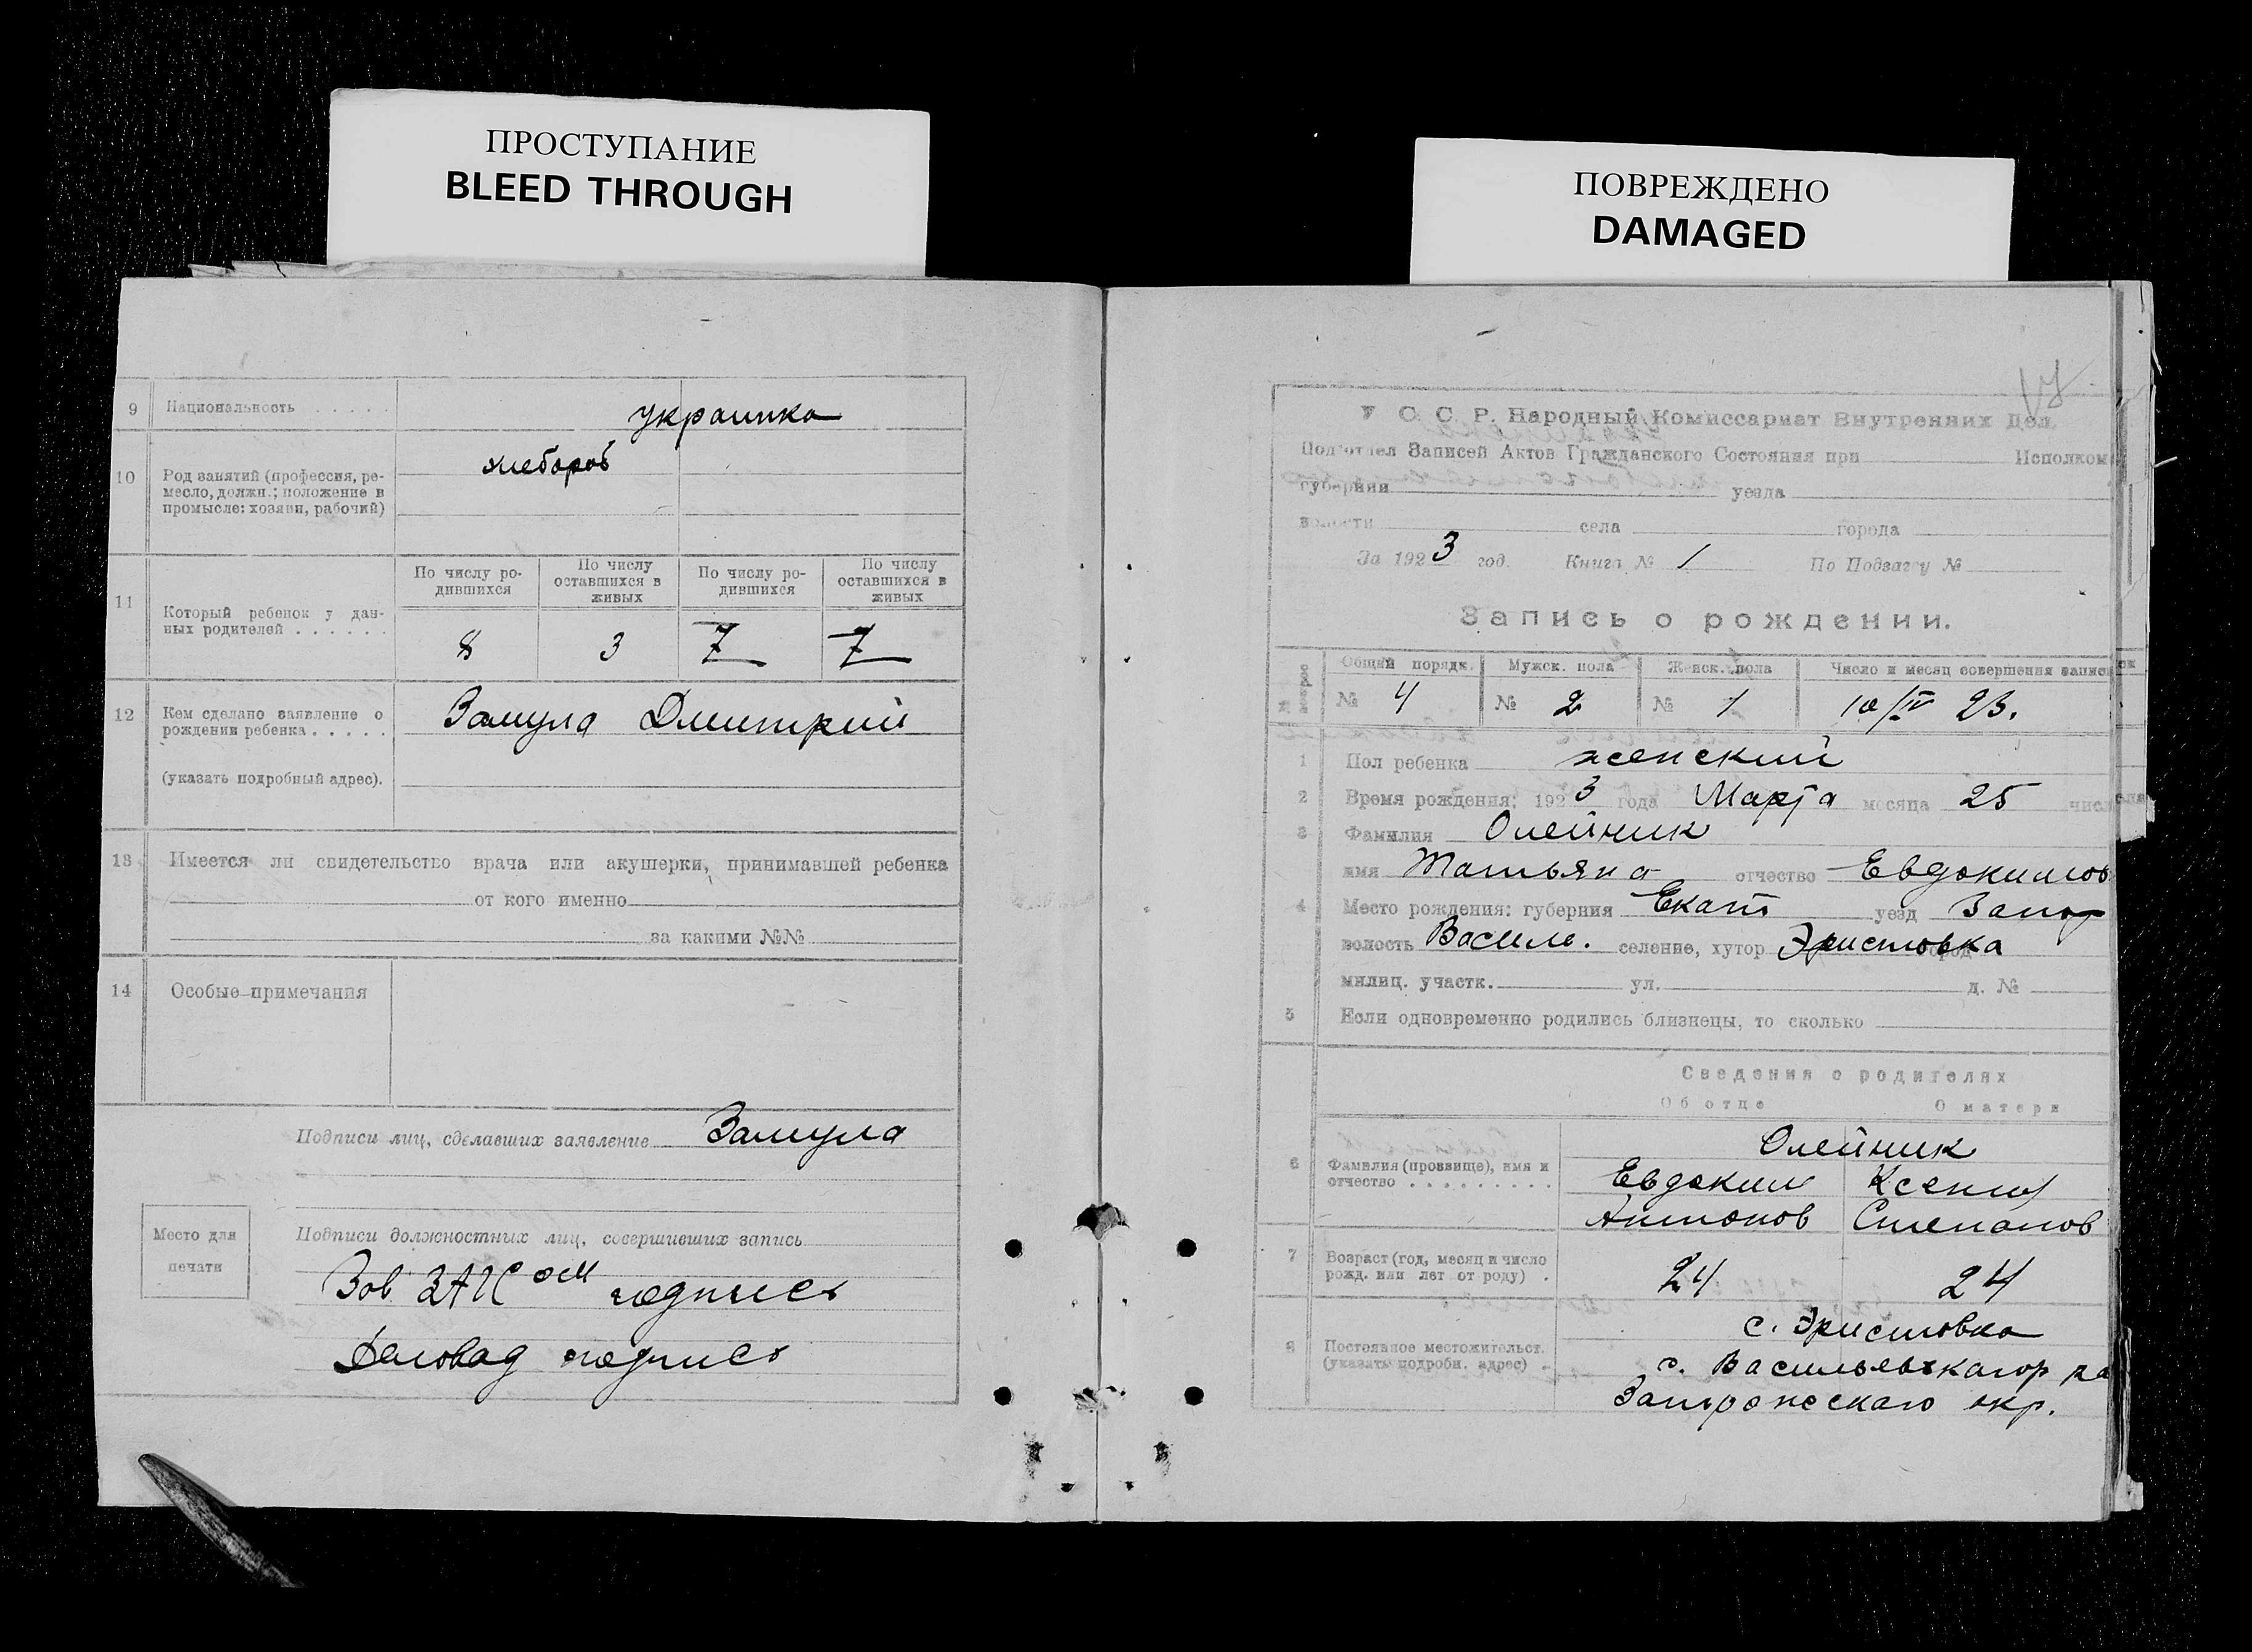 ПРОСТУПАНИЕ
BLEED THROUGH
9 Национальность . . . . . украинка
10 Род занятий (профессия, ре-
месло, должн.; положение в
промысле: хозяин, рабочий)
хлебороб
11 Который ребенок у дан-
ных родителей . . . . . .
По числу ро-
дившихся
По числу
оставшихся в
живых
По числу ро-
дившихся
По числу
оставшихся в
живых
8 3 7 7
12 Кем сделано заявление о
рождении ребенка . . . . .
(указать подробный адрес).
Замула Дмитрий
13 Имеется ли свидетельство врача или акушерки, принимавшей ребенка
от кого именно
за какими №№
14 Особые примечания
Подписи лиц, сделавших заявление Замула
Место для
печати
Подписи должностных лиц, совершивших запись
Зав ЗАГСом подпись
подпись
ПОВРЕЖДЕНО
DAMAGED
У С. С. Р. Народный Комиссариат Внутренних Дел.
Подотдел Записей Актов Гражданского Состояния при Исполком
губернии уезда
волости села города
За 1923 год. Книга № 1 По Подзагсу №
Запись о рождении.
Общий порядк. Мужск. пола Женск. пола Число и месяц совершения записи
№ 4 № 2 № 1 10/IV 23.
1 Пол ребенка женский
2 Время рождения: 1923 года Марта месяца 25 числа
3 Фамилия Олейник
имя Татьяна отчество Евдокимов
4 Место рождения: губерния Екат уезд Запор
волость Василь. селение, хутор Эристовка
милиц. участк. ул. д. №
5 Если одновременно родились близнецы, то сколько
Сведения о родителях
Об отце О матери
6 Фамилия (прозвище), имя и
отчество . . . . . . . . .
Олейник
Евдоким Ксения
Антонов Степанов
7 Возраст (год, месяц и число
рожд. или лет от роду) .
24 24
8 Постоянное местожительст.
(указать подробн. адрес) .
с. Эристовка
Запорожскаго окр.